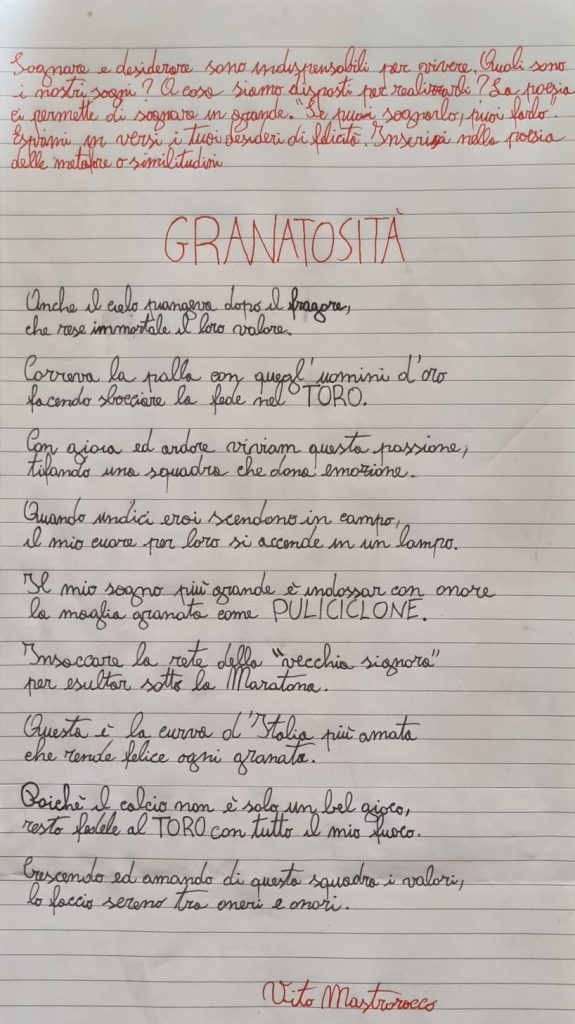 Sognare e desiderare sono indispensabili per vivere. Quali sono
i nostri sogni? A cosa siamo disposti per realizzarli? La poesia
ci permette di sognare in grande. "Se puoi sognarlo, puoi farlo".
Esprimi in versi i tuoi desideri di felicità. Inserisci nella poesia
delle metafore o similitudini
GRANATOSITÀ
Anche il cielo piangeva dopo il fragore,
che rese immortale il loro valore.
Correva la palla con quegl'uomini d'oro
facendo sbocciare la fede nel TORO.
Con gioia ed ardore viviam questa passione,
tifando una squadra che dona emozione.
Quando undici eroi scendono in campo,
il mio cuore per loro si accende in un lampo.
Il mio sogno più grande è indossar con onore
la maglia granata come PULICICLONE.
Insaccare la rete della "vecchia signora"
per esultar sotto la Maratona.
Questa è la curva d'Italia più amata
che rende felice ogni granata.
Poichè il calcio non è solo un bel gioco,
resto fedele al TORO con tutto il mio fuoco.
Crescendo ed amando di questa squadra i valori,
lo faccio sereno tra oneri e onori.
Vito Mastrorocco